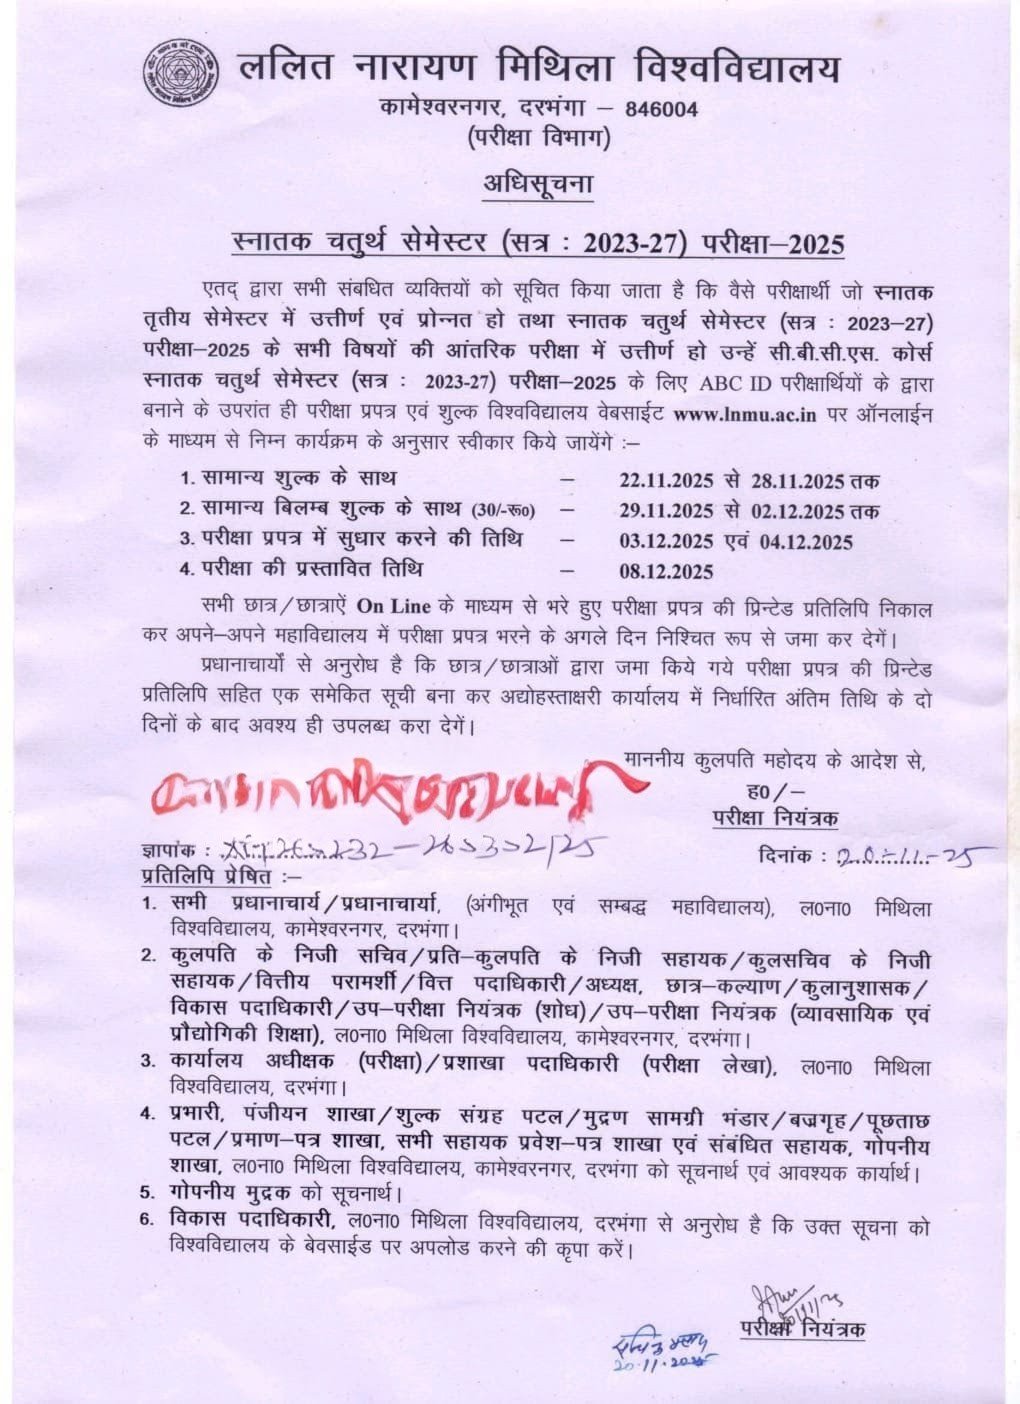 ललित नारायण मिथिला विश्वविद्यालय
कामेश्वरनगर, दरभंगा – 846004
(परीक्षा विभाग)
अधिसूचना
स्नातक चतुर्थ सेमेस्टर (सत्र : 2023-27) परीक्षा–2025
एतद् द्वारा सभी संबधित व्यक्तियों को सूचित किया जाता है कि वैसे परीक्षार्थी जो स्नातक
तृतीय सेमेस्टर में उत्तीर्ण एवं प्रोन्नत हो तथा स्नातक चतुर्थ सेमेस्टर (सत्र : 2023–27)
परीक्षा–2025 के सभी विषयों की आंतरिक परीक्षा में उत्तीर्ण हो उन्हें सी.बी.सी.एस. कोर्स
स्नातक चतुर्थ सेमेस्टर (सत्र : 2023-27) परीक्षा–2025 के लिए ABC ID परीक्षार्थियों के द्वारा
बनाने के उपरांत ही परीक्षा प्रपत्र एवं शुल्क विश्वविद्यालय वेबसाईट www.lnmu.ac.in पर ऑनलाईन
के माध्यम से निम्न कार्यक्रम के अनुसार स्वीकार किये जायेंगे :–
1. सामान्य शुल्क के साथ – 22.11.2025 से 28.11.2025 तक
2. सामान्य बिलम्ब शुल्क के साथ (30/-रू0) – 29.11.2025 से 02.12.2025 तक
3. परीक्षा प्रपत्र में सुधार करने की तिथि – 03.12.2025 एवं 04.12.2025
4. परीक्षा की प्रस्तावित तिथि – 08.12.2025
सभी छात्र/छात्राऐं On Line के माध्यम से भरे हुए परीक्षा प्रपत्र की प्रिन्टेड प्रतिलिपि निकाल
कर अपने–अपने महाविद्यालय में परीक्षा प्रपत्र भरने के अगले दिन निश्चित रूप से जमा कर देगें।
प्रधानाचार्यो से अनुरोध है कि छात्र/छात्राओं द्वारा जमा किये गये परीक्षा प्रपत्र की प्रिन्टेड
प्रतिलिपि सहित एक समेकित सूची बना कर अद्योहस्ताक्षरी कार्यालय में निर्धारित अंतिम तिथि के दो
दिनों के बाद अवश्य ही उपलब्ध करा देगें।
माननीय कुलपति महोदय के आदेश से,
ह0/–
परीक्षा नियंत्रक
ज्ञापांक :
दिनांक : 20-11-25
प्रतिलिपि प्रेषित :–
1. सभी प्रधानाचार्य/प्रधानाचार्या, (अंगीभूत एवं सम्बद्ध महाविद्यालय), ल0ना0 मिथिला
विश्वविद्यालय, कामेश्वरनगर, दरभंगा।
2. कुलपति के निजी सचिव/प्रति–कुलपति के निजी सहायक/कुलसचिव के निजी
सहायक/वित्तीय परामर्शी/वित्त पदाधिकारी/अध्यक्ष, छात्र–कल्याण/कुलानुशासक/
विकास पदाधिकारी/उप–परीक्षा नियंत्रक (शोध)/उप–परीक्षा नियंत्रक (व्यावसायिक एवं
प्रौद्योगिकी शिक्षा), ल0ना0 मिथिला विश्वविद्यालय, कामेश्वरनगर, दरभंगा।
3. कार्यालय अधीक्षक (परीक्षा)/प्रशाखा पदाधिकारी (परीक्षा लेखा), ल0ना0 मिथिला
विश्वविद्यालय, दरभंगा।
4. प्रभारी, पंजीयन शाखा/शुल्क संग्रह पटल/मुद्रण सामग्री भंडार/बज्रगृह/पूछताछ
पटल/प्रमाण–पत्र शाखा, सभी सहायक प्रवेश–पत्र शाखा एवं संबंधित सहायक, गोपनीय
शाखा, ल0ना0 मिथिला विश्वविद्यालय, कामेश्वरनगर, दरभंगा को सूचनार्थ एवं आवश्यक कार्यार्थ।
5. गोपनीय मुद्रक को सूचनार्थ।
6. विकास पदाधिकारी, ल0ना0 मिथिला विश्वविद्यालय, दरभंगा से अनुरोध है कि उक्त सूचना को
विश्वविद्यालय के बेवसाईड पर अपलोड करने की कृपा करें।
परीक्षा नियंत्रक
20.11.2025